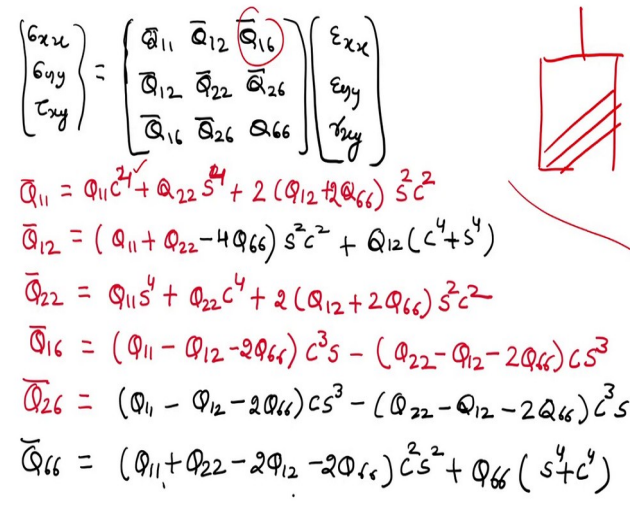 {σxx σyy τxy} = [Q̄11 Q̄12 Q̄16 {εxx
Q̄12 Q̄22 Q̄26 εyy
Q̄16 Q̄26 Q66] γxy}
Q̄11 = Q11c⁴ + Q22s⁴ + 2(Q12+2Q66)s²c²
Q̄12 = (Q11+Q22-4Q66)s²c² + Q12(c⁴+s⁴)
Q̄22 = Q11s⁴ + Q22c⁴ + 2(Q12+2Q66)s²c²
Q̄16 = (Q11-Q12-2Q66)c³s - (Q22-Q12-2Q66)cs³
Q̄26 = (Q11-Q12-2Q66)cs³ - (Q22-Q12-2Q66)c³s
Q̄66 = (Q11+Q22-2Q12-2Q66)c²s² + Q66(s⁴+c⁴)